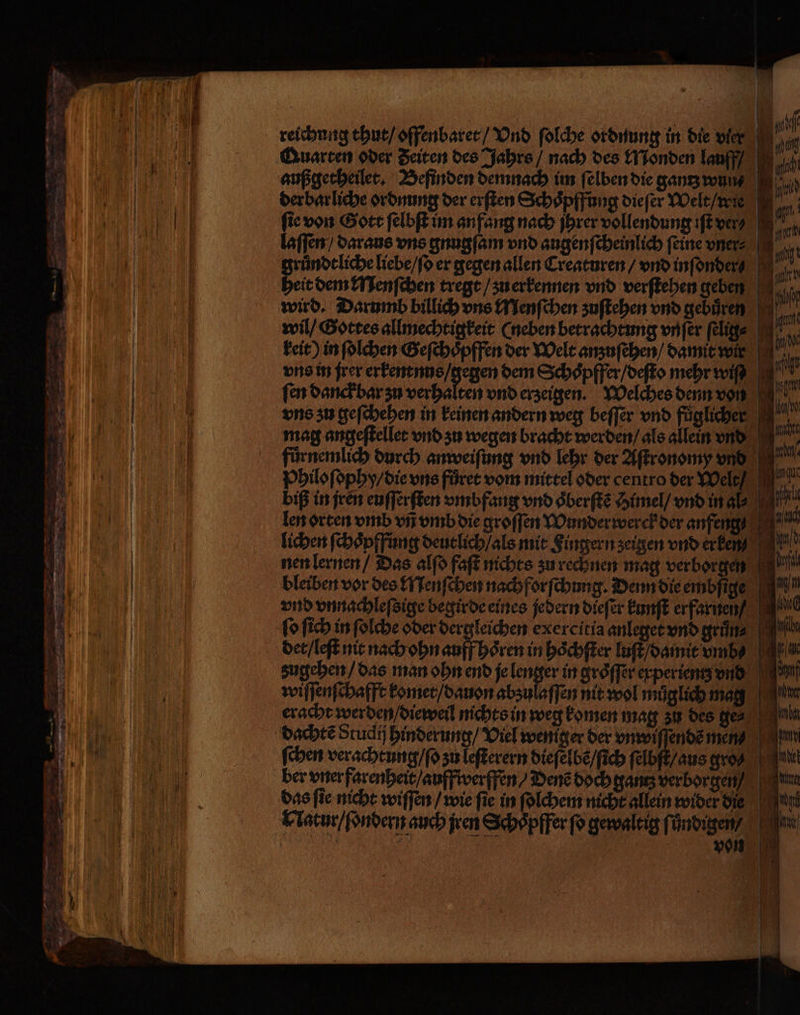 reichung thut/ offenbaret/ Vnd ſolche ordnung in die vier
Quarten oder Zeiten des Jahrs/ nach des Monden lauff/
außgetheilet. Befinden demnach im ſelben die gantz wun⸗
derbarliche ordnung der erſten Schoͤpffung dieſer Welt/ wie
ſie von Gott ſelbſt im anfang nach jhrer vollendung iſt ver⸗
laſſen/ daraus vns gnugſam vnd augenſcheinlich ſeine vner⸗
gruͤndtliche liebe/ ſo er gegen allen Creaturen/ vnd inſonder⸗
heit dem Menſchen tregt/ zu erkennen vnd verſtehen geben
wird. Darumb billich vns Menſchen zuſtehen vnd gebuͤren
wil/ Gottes allmechtigkeit (neben betrachtung vnſer ſelig⸗
keit) in ſolchen Geſchoͤpffen der Welt anzuſehen/ damit wir
vns in jrer erkentnus/ gegen dem Schoͤpffer/ deſto mehr wiſ⸗
ſen danckbar zu verhalten vnd erzeigen. Welches denn von
vns zu geſchehen in keinen andern weg beſſer vnd fuͤglicher
mag angeſtellet vnd zu wegen bracht werden/ als allein vnd
fuͤrnemlich durch anweiſung vnd lehr der Aſtronomy vnd
Philoſophy/ die vns fuͤret vom mittel oder centro der Welt/
biß in jren euſſerſten vmbfang vnd oͤberſtē Himel/ vnd in al⸗
len orten vmb vñ vmb die groſſen Wunderwerck der anfeng⸗
lichen ſchoͤpffung deutlich/ als mit Fingern zeigen vnd erken⸗
nen lernen/ Das alſo faſt nichts zu rechnen mag verborgen
bleiben vor des Menſchen nachforſchung. Denn die embſige
vnd vnnachleſsige begirde eines jedern dieſer kunſt erfarnen/
ſo ſich in ſolche oder dergleichen exercitia anleget vnd gruͤn⸗
det/ leſt nit nach ohn auff hoͤren in hoͤchſter luſt/ damit vmb⸗
zugehen/ das man ohn end je lenger in groͤſſer experientz vnd
wiſſenſchafft komet/ dauon abzulaſſen nit wol muͤglich mag
eracht werden/ dieweil nichts in weg komen mag zu des ge⸗
dachtē Studij hinderung/ Viel weniger der vnwiſſendē men⸗
ſchen verachtung/ ſo zu leſterern dieſelbē/ ſich ſelbſt/ aus gro⸗
ber vnerfarenheit/ auffwerffen/ Denē doch gantz verborgen/
das ſie nicht wiſſen/ wie ſie in ſolchem nicht allein wider die
Natur/ ſondern auch jren Schoͤpffer ſo gewaltig ſuͤndigen/
von